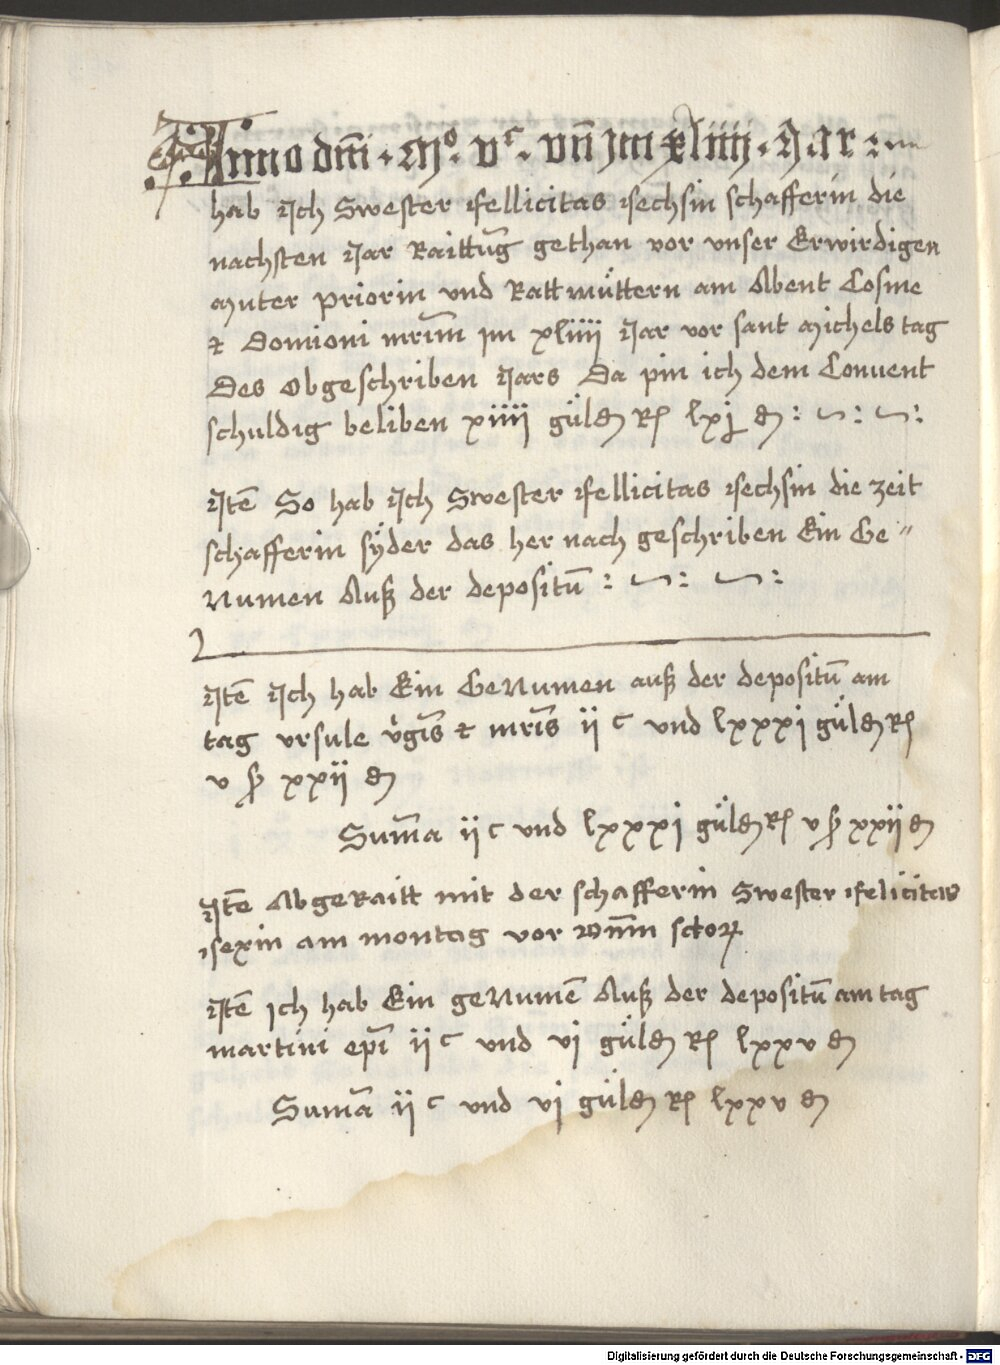 Anno dm̄i · M⁰ · vᶜ · vn̄ jm xliiij · Jar :
hab Jch Swester ffellicitas Sechsin schafferin die
nachsten Jar Raittūg gethan vor vnser Erwirdigen
Muter priorin vnd Ratt mu̇ttern am Abent Cosme
et Domioni mrīm jm xliiij Jar vor sant Michels tag
Des obgeschriben Jars Da pin ich dem Conuent
schuldig beliben xiiij gu̇ldn̄ Rh lxj dn̄ : ~ : ~ :
Jtē So hab Jch Swester ffellicitas Sechsin die zeit
schafferin sÿder das her nach geschriben Ein Ge〃
Numen Auß der depositū : ~ : ~ :
Jtē Jch hab Ein GeNumen auß der depositū am
tag vrsule v̇gīs et mrīs ij c vnd lxxxj gu̇ldn̄ Rh
v ß xxij dn̄
Sum̄a ij c vnd lxxxj gu̇ldn̄ Rh v ß xxij dn̄
Jtē AbgeRaitt mit der schafferin Swester ffelicitas
Sexin am montag vor om̄m sctoꝝ
Jtē ich hab Ein geNumē Auß der depositū am tag
martini epī ij c vnd vj gu̇ldn̄ Rh lxxv dn̄
Sum̄a ij c vnd vj gu̇ldn̄ Rh lxxv dn̄
Digitalisierung gefördert durch die Deutsche Forschungsgemeinschaft - DFG